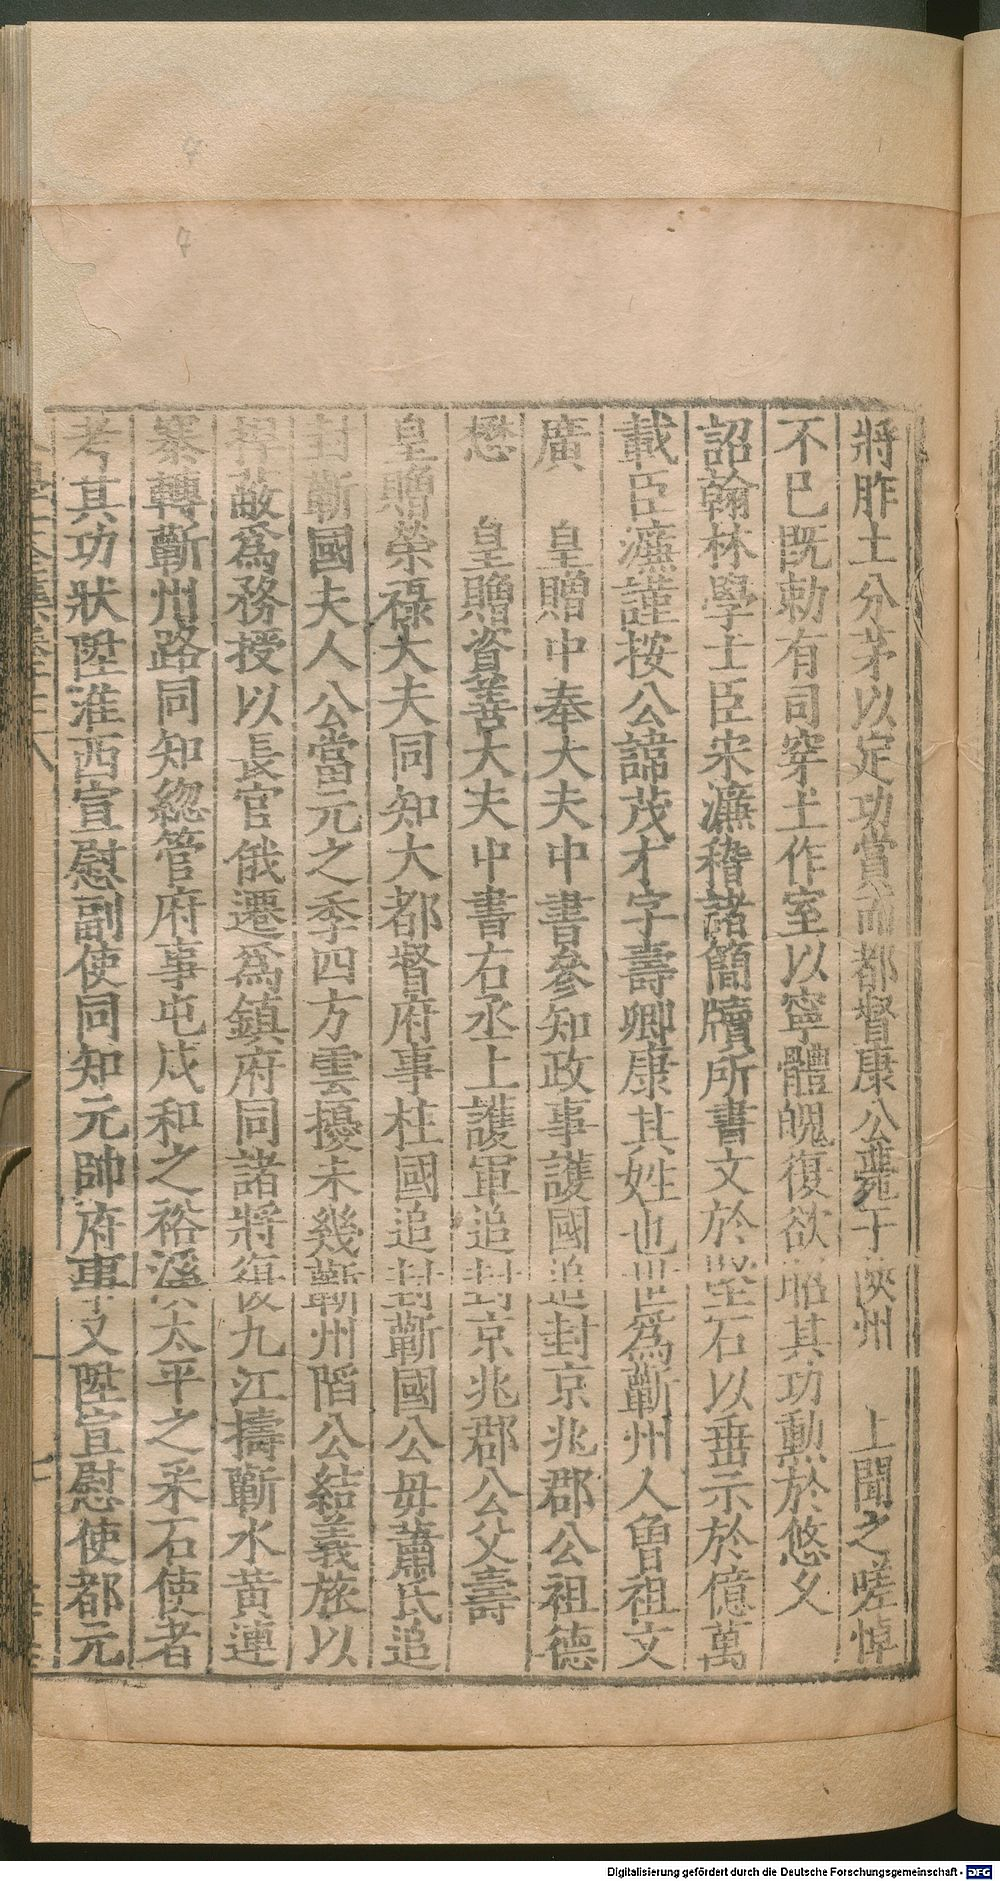 將胙土分茅以定功賞而都督康公薨于陝州　上聞之嗟悼
不已既勅有司穿土作室以寧體魄復欲昭其功勲於悠久
詔翰林學士臣宋濂稽諸簡牘所書文於堅石以垂示於億萬
載臣濂謹按公諱茂才字壽卿康其姓也世爲蘄州人曾祖文
廣　皇贈中奉大夫中書參知政事護國追封京兆郡公祖德
懋　皇贈資善大夫中書右丞上護軍追封京兆郡公父壽
皇贈榮祿大夫同知大都督府事柱國追封蘄國公毋蕭氏追
封蘄國夫人公當元之季四方雲擾未幾蘄州陷公結義旅以
捍敵爲務授以長官俄遷爲鎮府同諸將復九江擣蘄水黃連
寨轉蘄州路同知總管府事屯戍和之裕溪太平之采石使者
考其功狀陞淮西宣慰副使同知元帥府事又陞宣慰使都元
Digitalisierung gefördert durch die Deutsche Forschungsgemeinschaft - DFG